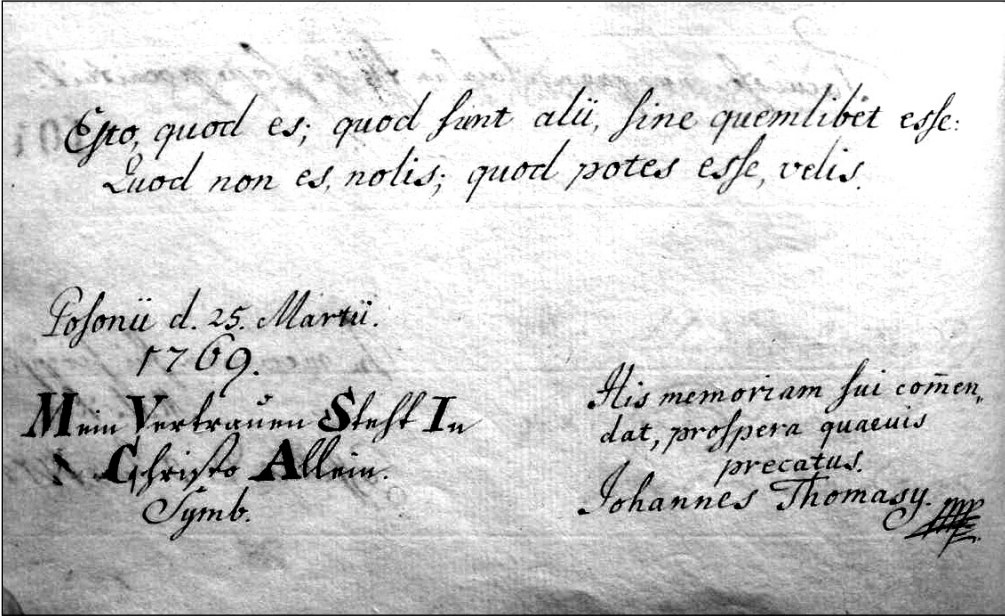 Esto, quod es; quod sunt alii, sine quemlibet esse:
Quod non es, nolis; quod potes esse, velis.
Posonii d. 25. Martii.
1769.
Mein Vertrauen Steht In
Christo Allein.
Symb.
His memoriam sui com̄en,
dat, prospera quaevis
precatus.
Johannes Thomasy.